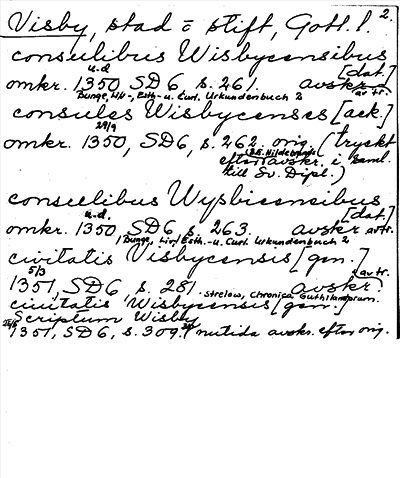 2.
Visby, stad o stift, Gotl. l.
consulibus Wisbycensibus
u.d. [dat.]
omkr. 1350, SD6, s. 261. avskr.
Bunge, Liv-, Esth- u. Curl. Urkundenbuch 2 av tr.
consules Wisbycenses [ack.]
29/9
omkr. 1350, SD6, s. 262. orig. (tryckt
efter avskr. i saml.
till Sv. Dipl.)
consulibus Wysbicensibus
u.d. [dat.]
omkr. 1350, SD6, s. 263. avskr av tr.
Bunge, Liv- Esth.- u. Curl. Urkundenbuch 2
civitatis Visbycensis [gen.]
5/3 av tr.
1351, SD6, s. 281. avskr.
Strelow, Chronica Guthilandorum.
civitatis Wisbycensis [gen.]
Scriptum Wisby
1351, SD6, s. 309. (nutida avskr. efter orig.